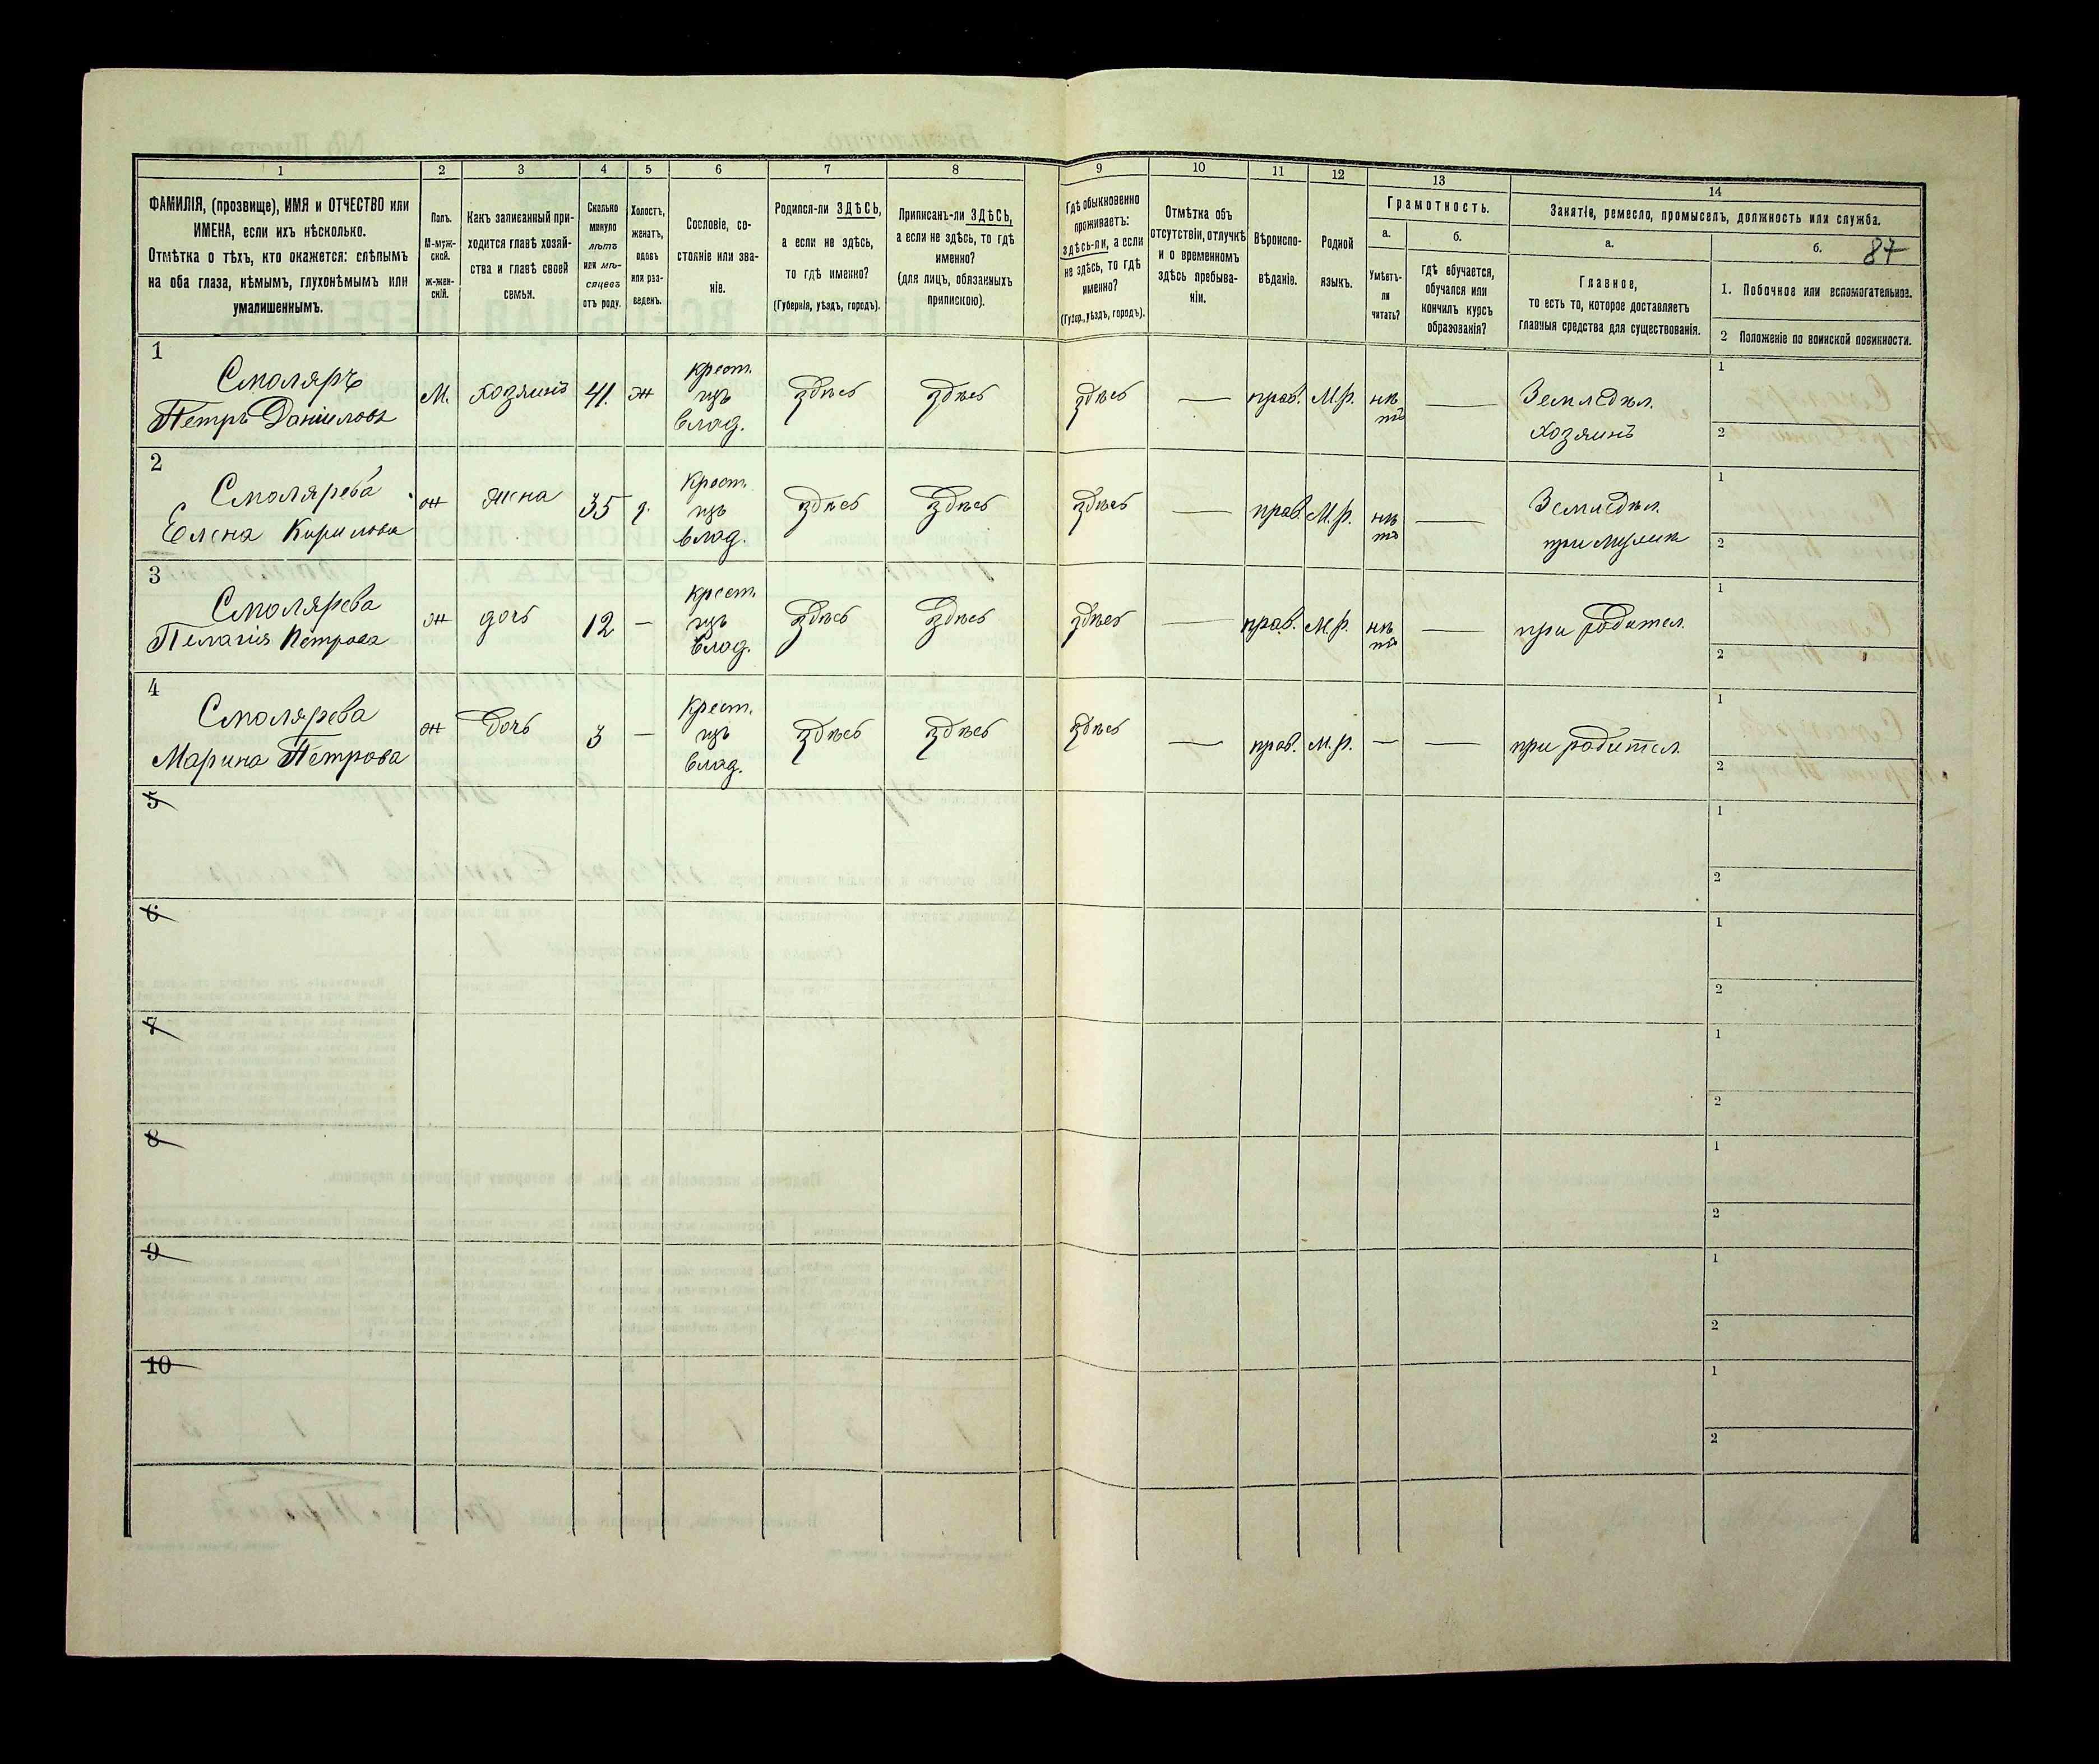 1 2 3 4 5 6 7 8 9 10 11 12 13 14
ФАМИЛІЯ, (прозвище), ИМЯ и ОТЧЕСТВО или
ИМЕНА, если ихъ нѣсколько.
Отмѣтка о тѣхъ, кто окажется: слѣпымъ
на оба глаза, нѣмымъ, глухонѣмымъ или
умалишеннымъ.
Полъ.
М-муж-
ской.
ж-жен-
скій.
Какъ записанный при-
ходится главѣ хозяй-
ства и главѣ своей
семьи.
Сколько
минуло
лѣтъ
или мѣ-
сяцевъ
отъ роду.
Холостъ,
женатъ,
вдовъ
или раз-
веденъ.
Сословіе, со-
стояніе или зва-
ніе.
Родился-ли ЗДѢСЬ,
а если не здѣсь,
то гдѣ именно?
(Губернія, уѣздъ, городъ).
Приписанъ-ли ЗДѢСЬ,
а если не здѣсь, то гдѣ
именно?
(для лицъ, обязанныхъ
припискою).
Гдѣ обыкновенно
проживаетъ:
здѣсь-ли, а если
не здѣсь, то гдѣ
именно?
(Губер., уѣздъ, городъ).
Отмѣтка объ
отсутствіи, отлучкѣ
и о временномъ
здѣсь пребыва-
ніи.
Вѣроиспо-
вѣданіе.
Родной
языкъ.
Грамотность.
а.
Умѣетъ-
ли
читать?
б.
гдѣ обучается,
обучался или
кончилъ курсъ
образованія?
Занятіе, ремесло, промыселъ, должность или служба.
а.
Главное,
то есть то, которое доставляетъ
главныя средства для существованія.
б.
87
1. Побочное или вспомогательное.
2 Положеніе по воинской повинности.
1
Смоляръ
Петръ Даниловъ
М.
хозяинъ
41.
ж
крест.
изъ
влад.
здѣсь
здѣсь
здѣсь
—
прав.
М.р.
нѣ
тъ
—
Земледѣл.
хозяинъ
1
2
2
Смолярева
Елена Кирилова
ж
жена
35
з.
Крест.
изъ
влад.
здѣсь
здѣсь
здѣсь
—
прав.
М.р.
нѣ
тъ
—
Земледѣл.
при мужѣ
1
2
3
Смолярева
Пелагія Петрова
ж
дочь
12
—
крест.
изъ
влад.
здѣсь
здѣсь
здѣсь
—
прав.
М.р.
нѣ
тъ
—
при родител.
1
2
4
Смолярева
Марина Петрова
ж
дочь
3
—
Крест.
изъ
влад.
здѣсь
здѣсь
здѣсь
—
прав.
М.р.
—
—
при родител.
1
2
5
1
2
6
1
2
7
1
2
8
1
2
9
1
2
10
1
2